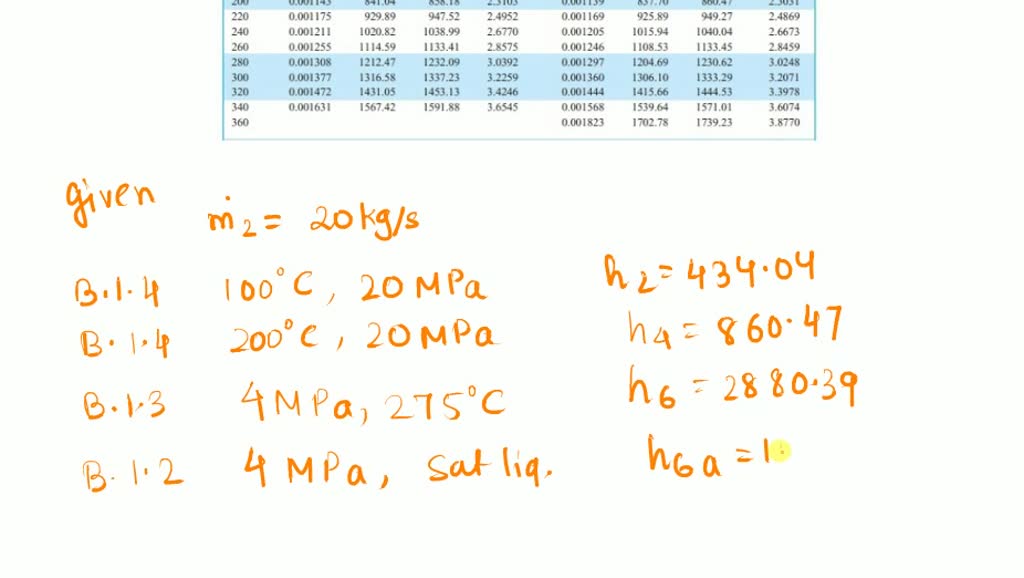 200 0.001143 841.04 858.18 2.3103 0.001139 837.70 860.47 2.3031
220 0.001175 929.89 947.52 2.4952 0.001169 925.89 949.27 2.4869
240 0.001211 1020.82 1038.99 2.6770 0.001205 1015.94 1040.04 2.6673
260 0.001255 1114.59 1133.41 2.8575 0.001246 1108.53 1133.45 2.8459
280 0.001308 1212.47 1232.09 3.0392 0.001297 1204.69 1230.62 3.0248
300 0.001377 1316.58 1337.23 3.2259 0.001360 1306.10 1333.29 3.2071
320 0.001472 1431.05 1453.13 3.4246 0.001444 1415.66 1444.53 3.3978
340 0.001631 1567.42 1591.88 3.6545 0.001568 1539.64 1571.01 3.6074
360 0.001823 1702.78 1739.23 3.8770
given
ṁ2 = 20kg/s
B.1.4 100°C, 20 MPa h2 = 434.04
B.1.4 200°C, 20 MPa h4 = 860.47
B.1.3 4 MPa, 275°C h6 = 2880.39
B.1.2 4 MPa, Sat liq. h6a = 1